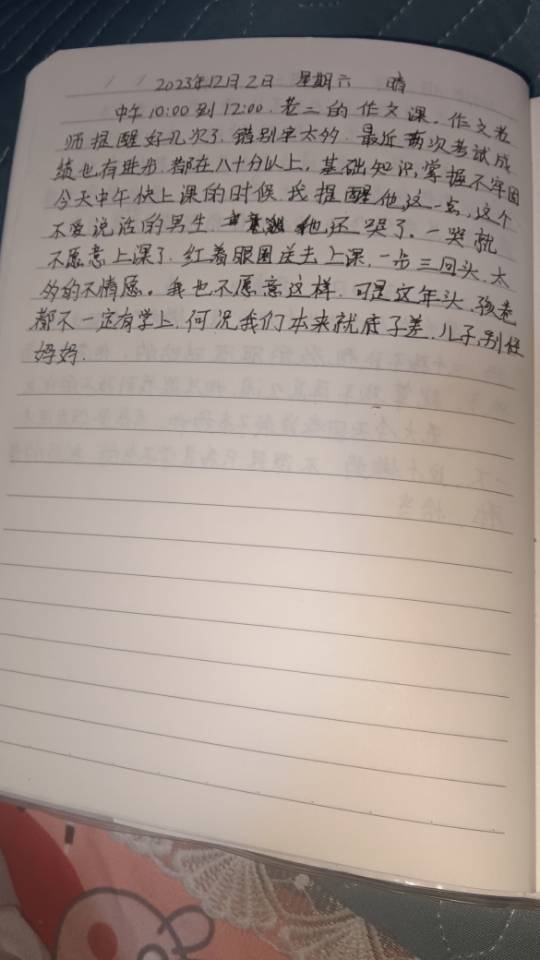 2023年12月2日 星期六 晴
中午10:00到12:00.老二的作文课.作文老
师提醒好几次了.错别字太多.最近两次考试成
绩也有进步.都在八十分以上.基础知识掌握不牢固
今天中午快上课的时候.我提醒他这一点,这个
不爱说话的男生.他还哭了.一哭就
不愿意上课了.红着眼圈送去上课.一步三回头.太
多的不情愿。我也不愿意这样.可是这年头.孩老
都不一定有学上.何况我们本来就底子差.儿子,别怪
妈妈.